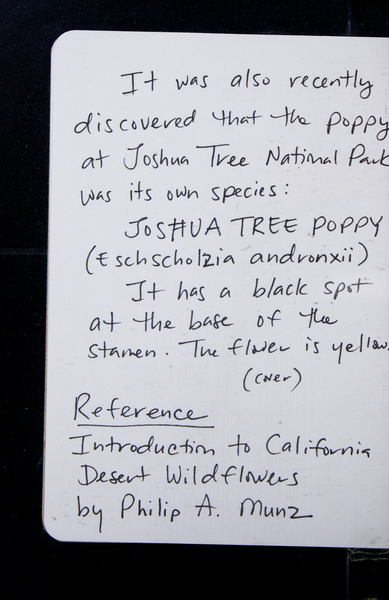 It was also recently
discovered that the poppy
at Joshua Tree National Park
was its own species:
JOSHUA TREE POPPY
(Eschscholzia andronxii)
It has a black spot
at the base of the
stamen. The flower is yellow.
(over)
Reference
Introduction to California
Desert Wildflowers
by Philip A. Munz